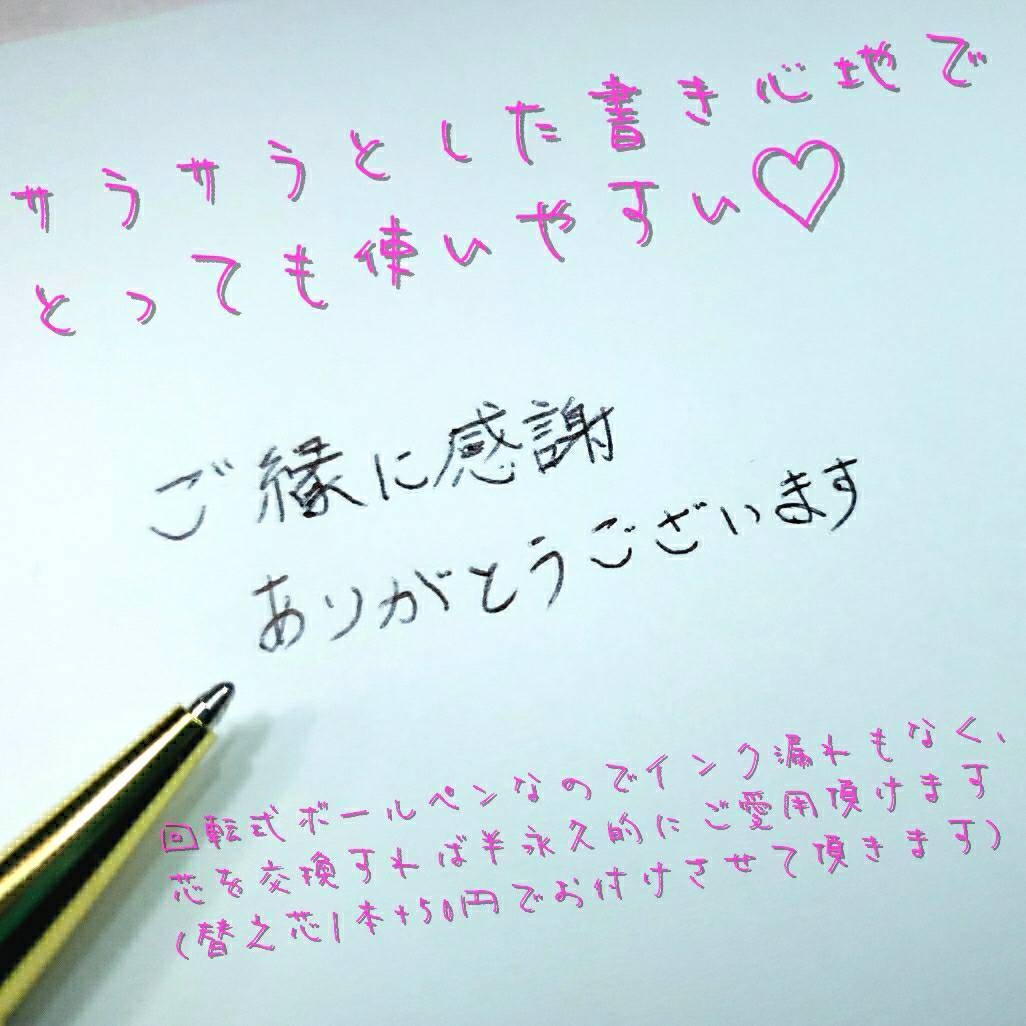 サラサラとした書き心地で
とっても使いやすい♡
ご縁に感謝
ありがとうございます
回転式ボールペンなのでインク漏れもなく、
芯を交換すれば半永久的にご愛用頂けます
(替え芯1本+50円でお付けさせて頂きます)